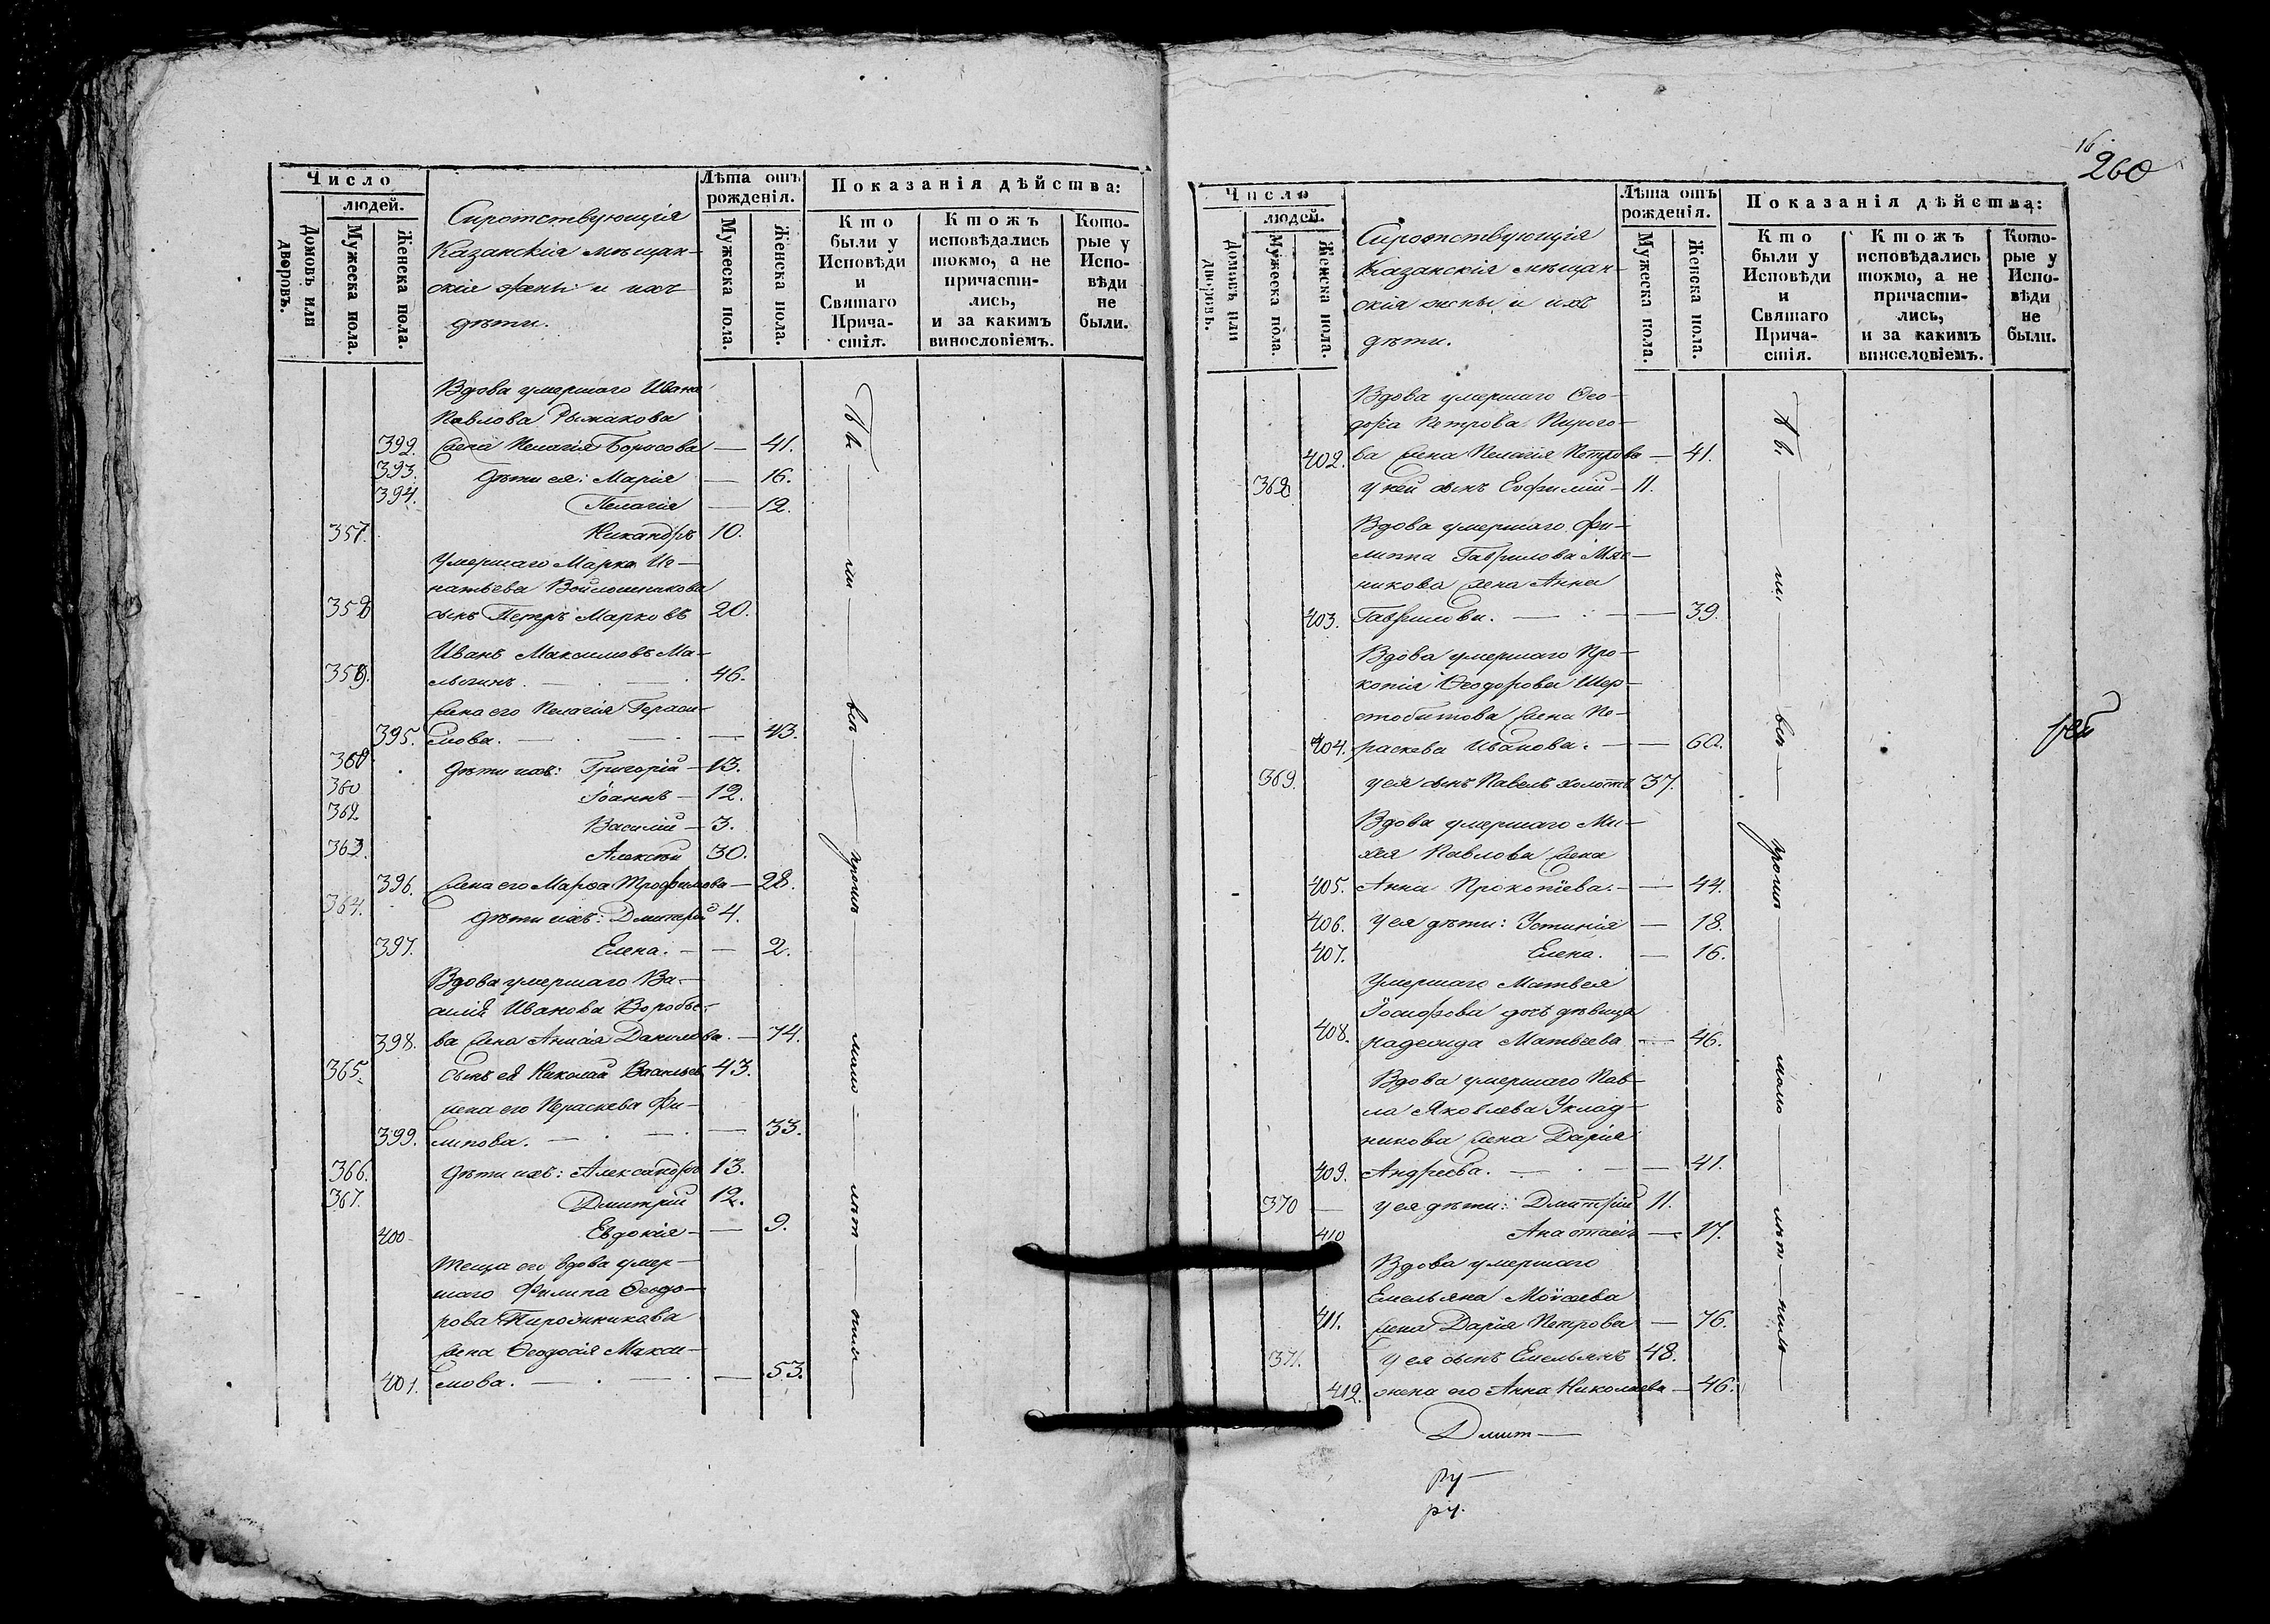 Число
людей.
Домовъ или дворовъ.
Мужеска пола.
Женска пола.
Сиротствующія
Казанскія мѣщан-
скія жены и ихъ
дѣти.
Лѣта отъ
рожденія.
Мужеска пола.
Женска пола.
Показанія дѣйства:
Кто были у Исповѣди и Святаго Прича-стія.
Ктожъ исповѣдались токмо, а не причасти-лись, и за какимъ винословіемъ.
Кото-рые у Испо-вѣди не были.
Вдова умершаго Ивана
Павлова Рыжакова
392. жена Пелагія Борисова — 41.
393. Дѣти ея: Марія — 16.
394. Пелагія — 12.
357. Никандръ 10.
Умершаго Марка Иг-
натьева Войлошникова
358 сынъ Петръ Марковъ 20.
Иванъ Максимовъ Ма-
359. 46.
жена его Пелагія Гераси-
395. мова. — 43.
360 Дѣти ихъ: Григорій — 13.
360 Іоаннъ — 12.
362 Василій — 3.
363. Алексѣй 30.
396. жена его Марѳа Трофимова — 28.
364. Дѣти ихъ: Дмитрій 4.
397. Елена. — 2.
Вдова умершаго Ва-
силія Иванова Воробье-
398. ва жена Анисія Данилова. — 74.
365. Сынъ ея Николай Васильев 43.
жена его Параскева Фи-
399. липова. — 33.
366. Дѣти ихъ: Александръ 13.
367. Дмитрій 12.
400 Евдокія — 9.
Теща его вдова умер-
шаго Филипа Ѳеодо-
рова Пирожникова
жена Ѳеодосія Макси-
401. мова. — 53.
16
260
Число
людей.
Домовъ или дворовъ.
Мужеска пола.
Женска пола.
Сиротствующія
Казанскія мѣщан-
скія жены и ихъ
дѣти.
Лѣта отъ
рожденія.
Мужеска пола.
Женска пола.
Показанія дѣйства:
Кто были у Исповѣди и Святаго Прича-стія.
Ктожъ исповѣдались токмо, а не причасти-лись, и за какимъ винословіемъ.
Кото-рые у Испо-вѣди не были.
Вдова умершаго Ѳео-
дора Петрова Пирого-
402. ва жена Пелагія Петрова — 41.
368 У ней сынъ Евфимій — 11.
Вдова умершаго Фи-
липпа Гаврилова Мяс-
никова жена Анна
403. Гаврилова. — 39.
Вдова умершаго Про-
копія Ѳеодорова Шер-
стобитова жена Па-
404. раскева Иванова. — 60.
369. У ея сынъ Павелъ холостъ 37.
Вдова умершаго Ми-
хея Павлова жена
405. Анна Прокопіева. — 44.
406. У ея дѣти: Устинія — 18.
407. Елена. — 16.
Умершаго Матвея
дочь дѣвица
408. Надежда Матвеева — 46.
Вдова умершаго Пав-
ла Яковлева Уклад-
никова жена Дарія
409. Андреева. — 41.
370 — У ея дѣти: Дмитрій 11.
410 Анастасія — 17.
Вдова умершаго
Емельяна Моисеева
411. жена Дарія Петрова — 76.
371. У ея сынъ Емельянъ 48.
412. жена его Анна Николаева — 46.
Дмит —
ру —
ру.